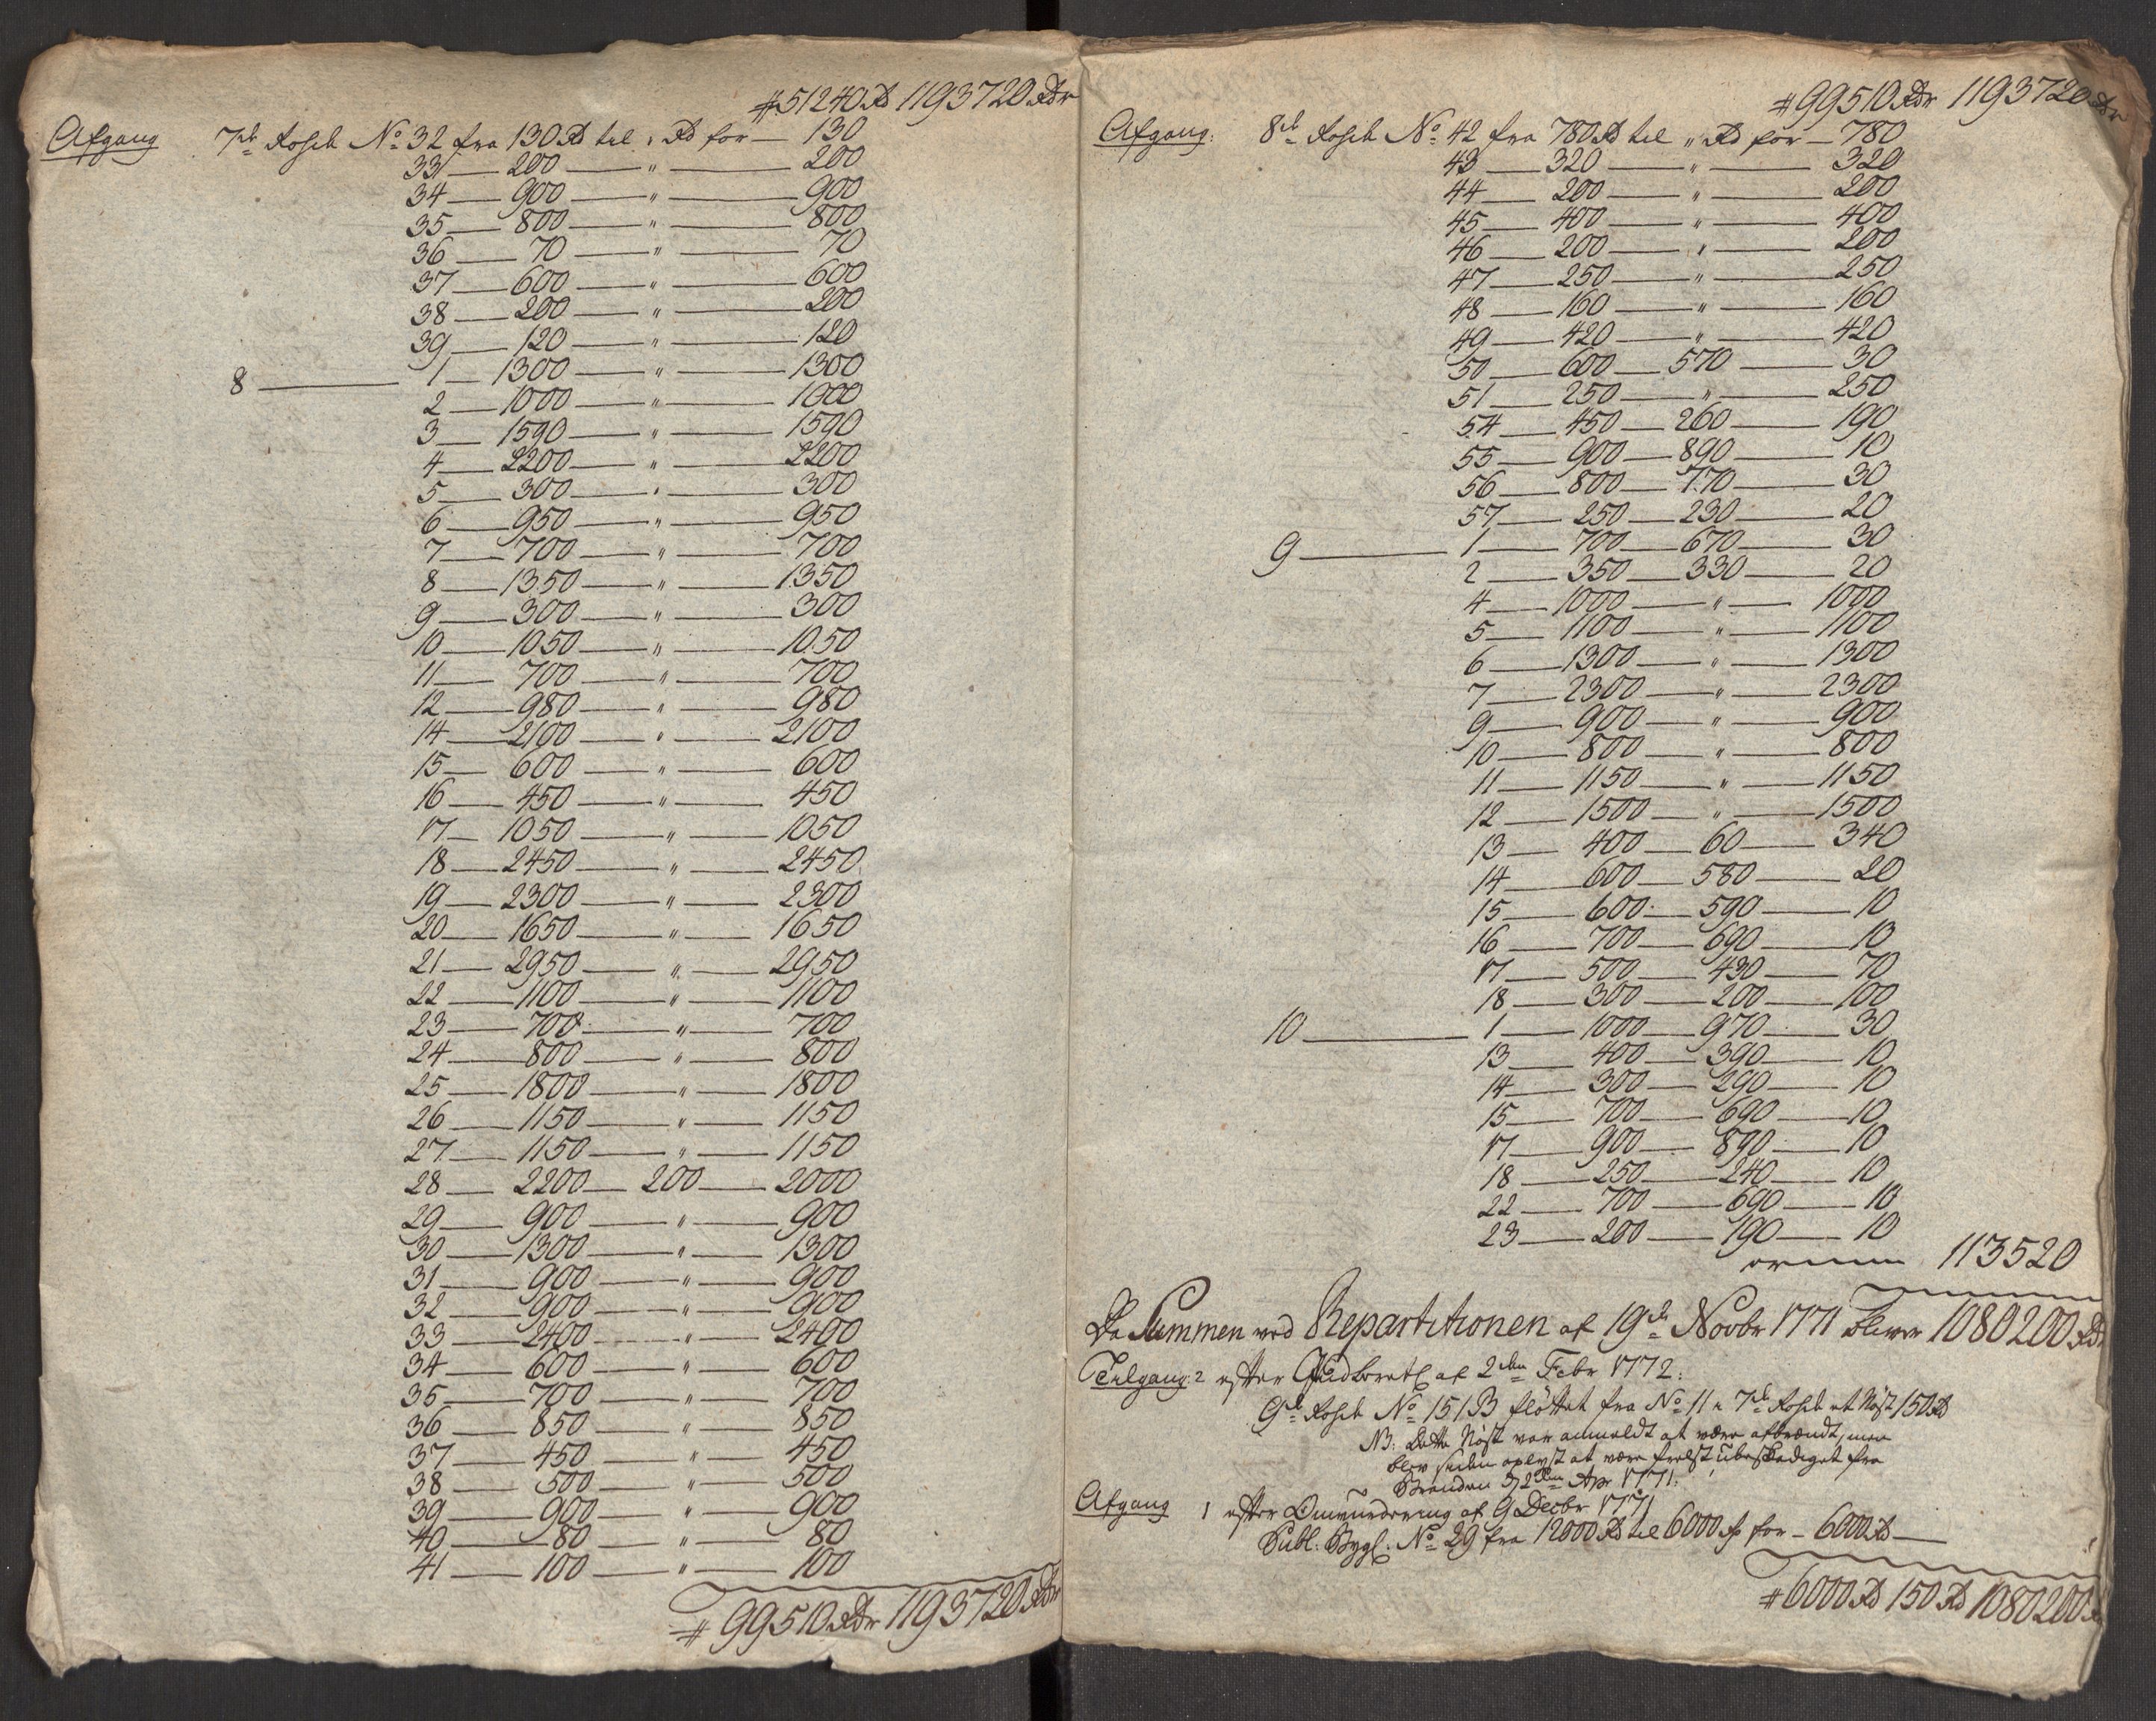 # 51240 Rd 1193720 Rdr
Afgang 7de Rosch No 32 fra 130 Rd til " Rd for — 130
33 — 200 — " — 200
34 — 900 — " — 900
35 — 800 — " — 800
36 — 70 — " — 70
37 — 600 — " — 600
38 — 200 — " — 200
39 — 120 — " — 120
8 — 1 — 1300 — " — 1300
2 — 1000 — " — 1000
3 — 1590 — " — 1590
4 — 2200 — " — 2200
5 — 300 — " — 300
6 — 950 — " — 950
7 — 700 — " — 700
8 — 1350 — " — 1350
9 — 300 — " — 300
10 — 1050 — " — 1050
11 — 700 — " — 700
12 — 980 — " — 980
14 — 2100 — " — 2100
15 — 600 — " — 600
16 — 450 — " — 450
17 — 1050 — " — 1050
18 — 2450 — " — 2450
19 — 2300 — " — 2300
20 — 1650 — " — 1650
21 — 2950 — " — 2950
22 — 1100 — " — 1100
23 — 700 — " — 700
24 — 800 — " — 800
25 — 1800 — " — 1800
26 — 1150 — " — 1150
27 — 1150 — " — 1150
28 — 2200 — 200 — 2000
29 — 900 — " — 900
30 — 1300 — " — 1300
31 — 900 — " — 900
32 — 900 — " — 900
33 — 2400 — " — 2400
34 — 600 — " — 600
35 — 700 — " — 700
36 — 850 — " — 850
37 — 450 — " — 450
38 — 500 — " — 500
39 — 900 — " — 900
40 — 80 — " — 80
41 — 100 — " — 100
# 99510 Rdr 1193720 Rdr
# 99510 Rdr 1193720 Rdr
Afgang: 8de Rosch No 42 fra 780 Rd til " Rd for — 780
43 — 320 — " — 320
44 — 200 — " — 200
45 — 400 — " — 400
46 — 200 — " — 200
47 — 250 — " — 250
48 — 160 — " — 160
49 — 420 — " — 420
50 — 600 — 570 — 30
51 — 250 — " — 250
54 — 450 — 260 — 190
55 — 900 — 890 — 10
56 — 800 — 770 — 30
57 — 250 — 230 — 20
9 — 1 — 700 — 670 — 30
2 — 350 — 330 — 20
4 — 1000 — " — 1000
5 — 1100 — " — 1100
6 — 1300 — " — 1300
7 — 2300 — " — 2300
9 — 900 — " — 900
10 — 800 — " — 800
11 — 1150 — " — 1150
12 — 1500 — " — 1500
13 — 400 — 60 — 340
14 — 600 — 580 — 20
15 — 600 — 590 — 10
16 — 700 — 690 — 10
17 — 500 — 430 — 70
18 — 300 — 200 — 100
10 — 1 — 1000 — 970 — 30
13 — 400 — 390 — 10
14 — 300 — 290 — 10
15 — 700 — 690 — 10
17 — 900 — 890 — 10
18 — 250 — 240 — 10
22 — 700 — 690 — 10
23 — 200 — 190 — 10
113520
Da Summen ved Repartitionen af 19de Novbr 1771 bliver 1080200 Rdr
Tilgang: 2 efter af 2den Febr 1772:
9de Rosch No 151 B flöttet fra No 11 i 7de Rosch et Nöst 150 Rd
NB: Dette Nöst var anmeldt at være afbrændt, men
blev siden oplyst at være frelst ubeskadiget fra
Branden d 2den Apr 1771.
Afgang 1 efter Omvurdering af 9 Decbr 1771
Publ: Bygl: No 29 fra 12000 Rd til 6000 Rd for — 6000 Rd —
# 6000 Rd 150 Rd 1080200